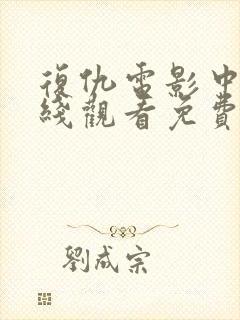 復仇電影中
綫觀看免費
劉成宗